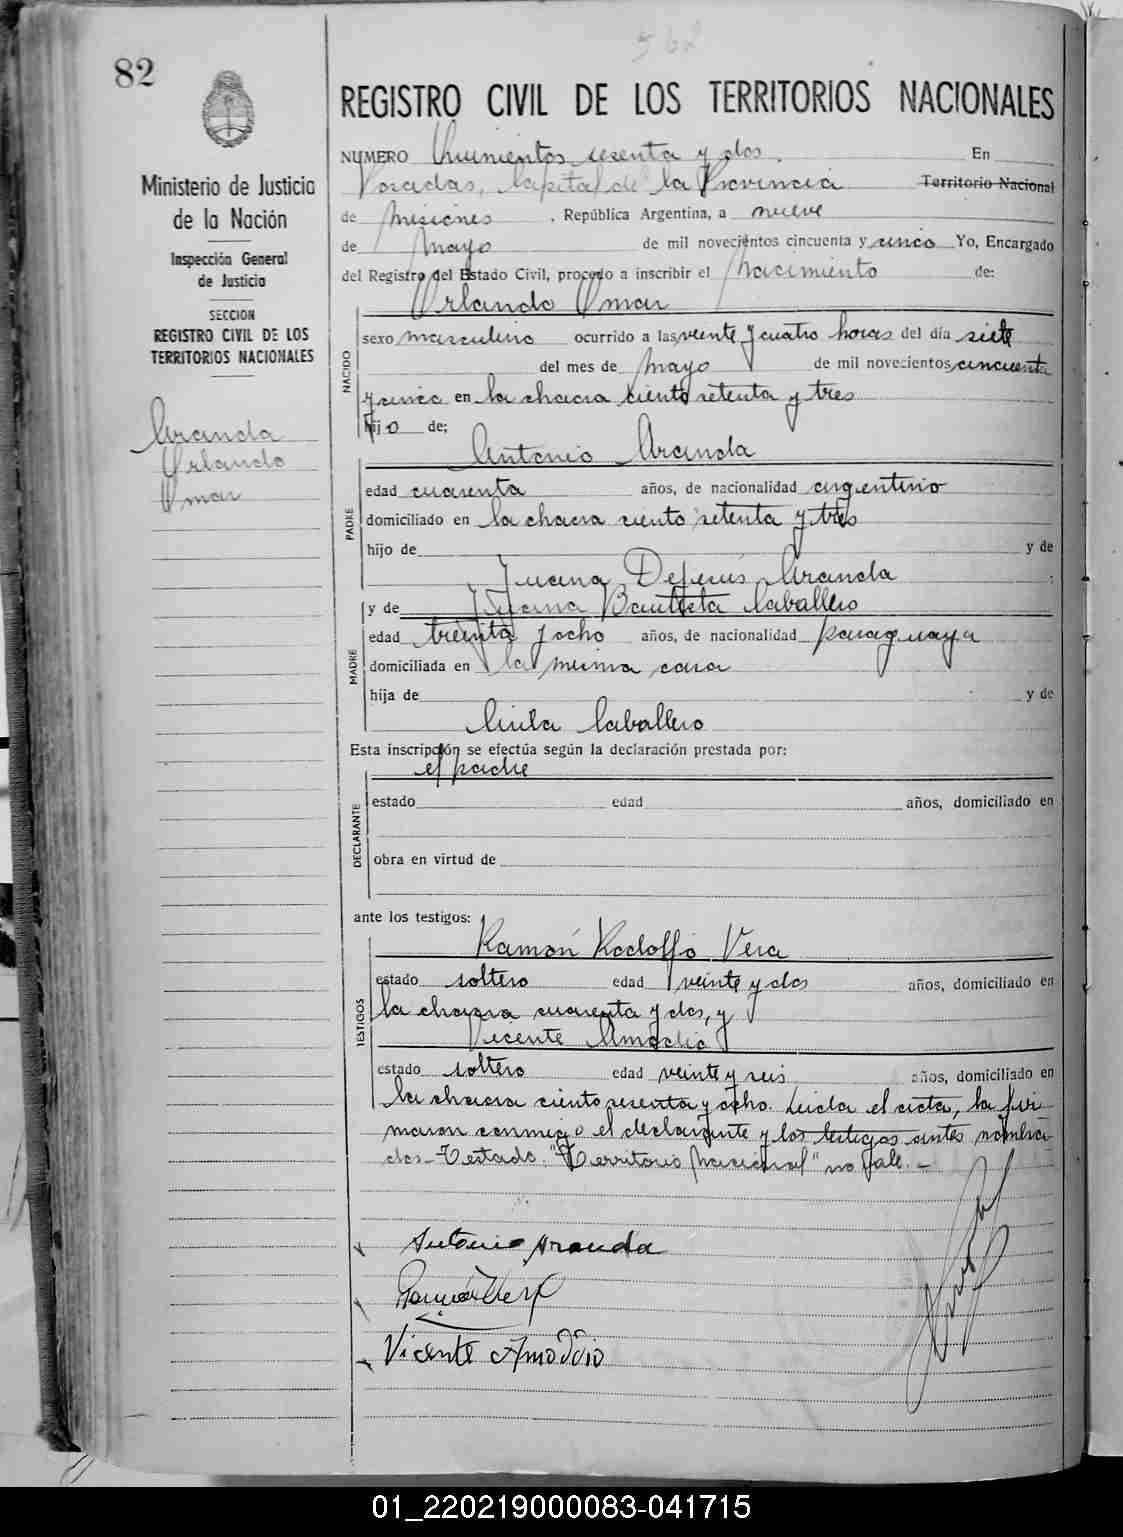 82
562
REGISTRO CIVIL DE LOS TERRITORIOS NACIONALES
Ministerio de Justicia
de la Nación
Inspección General
de Justicia
SECCION
REGISTRO CIVIL DE LOS
TERRITORIOS NACIONALES
Aranda
Orlando
Omar
NUMERO Quinientos sesenta y dos. En
Posadas, Capital de la Provincia Territorio Nacional
de Misiones, República Argentina, a nueve
de Mayo de mil novecientos cincuenta y cinco Yo, Encargado
del Registro del Estado Civil, procedo a inscribir el Nacimiento de:
Orlando Omar
NACIDO
sexo masculino ocurrido a las veinte y cuatro horas del día siete
del mes de Mayo de mil novecientos cincuenta
y cinco en la chacra ciento setenta y tres
hijo de;
Antonio Aranda
PADRE
edad cuarenta años, de nacionalidad argentino
domiciliado en la chacra ciento setenta y tres
hijo de y de
Juana Dejesús Aranda
y de Juana Bautista Caballero
MADRE
edad treinta y ocho años, de nacionalidad paraguaya
domiciliada en la misma casa
hija de y de
Caballero
Esta inscripción se efectúa según la declaración prestada por:
el padre
DECLARANTE
estado edad años, domiciliado en
obra en virtud de
ante los testigos:
Ramón Rodolfo Vera
TESTIGOS
estado soltero edad veinte y dos años, domiciliado en
la chacra cuarenta y dos, y
Vicente Amodio
estado soltero edad veinte y seis años, domiciliado en
la chacra ciento sesenta y ocho. Leida el acta, la fir
maron conmigo el declarante y los testigos antes nombra
dos- Testado: "Territorio Nacional" no vale. -
Antonio Aranda
Ramón Vera
Vicente Amoddio
01_220219000083-041715